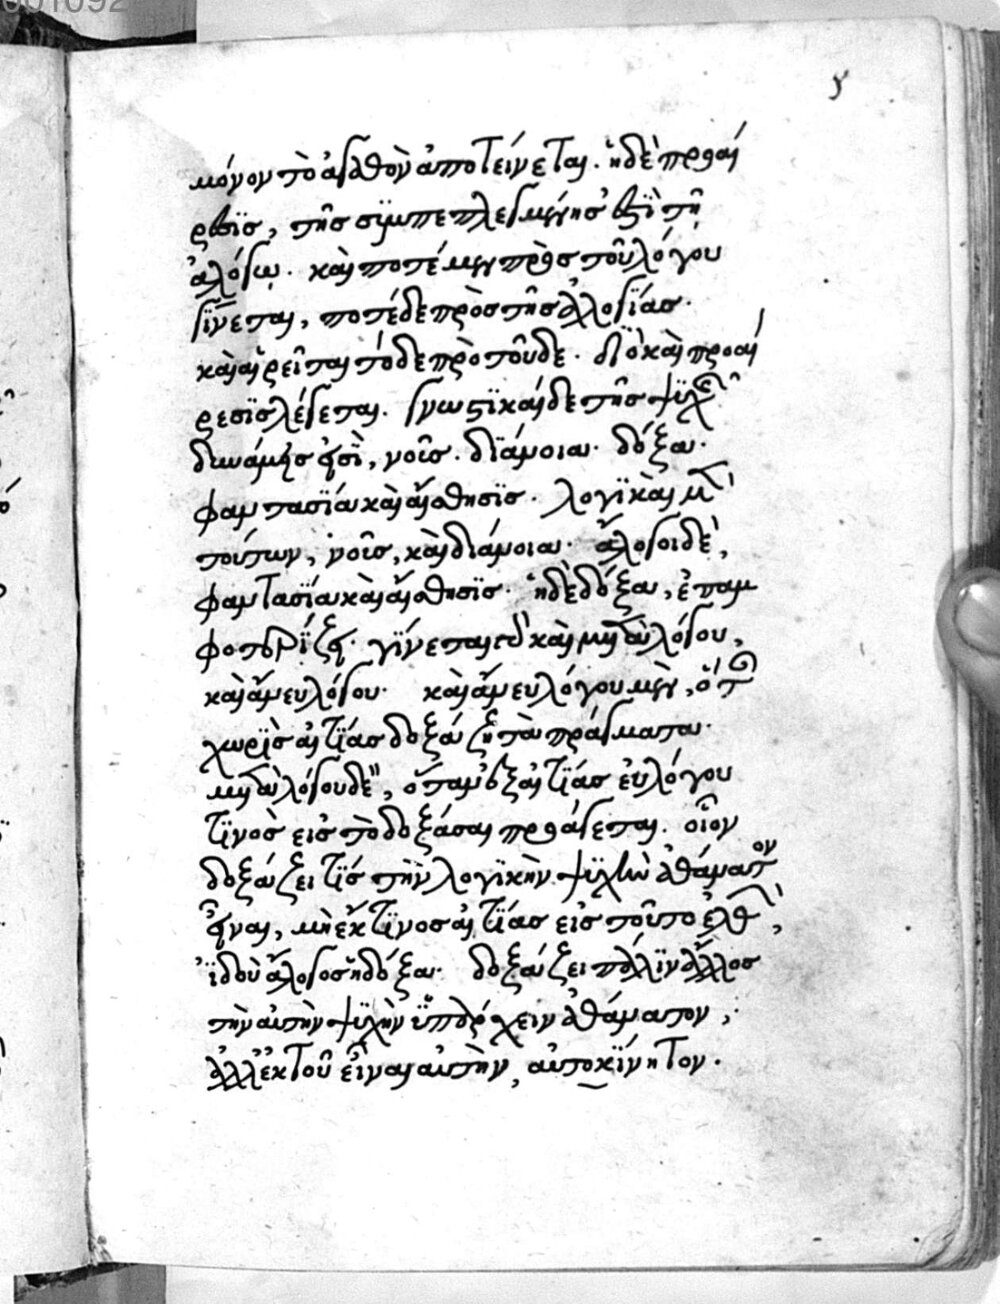 001092
μόνον τὸ ἀγαθὸν ἀποτείνεται. ἡ δὲ προαί
ρεσϊς, τῆς συμπεπλεγμένης ἐστὶ τῆ
ἀλόγω. καὶ ποτὲ μὲν πρὸς τοῦ λόγου
γίνεται, ποτὲ δὲ πρὸς τῆς ἀλλογΐας.
καὶ αἱρεῖται τόδε πρὸ τοῦδε. διὸ καὶ προαί
ρεσϊς λέγεται. γνωστϊκαὶ δὲ τῆς ψυχῆς
δυνάμεις εἰσὶ, νοῦς. διάνοια. δόξα.
φαντασΐα καὶ αἴσθησϊς. λογϊκαὶ μὲν
τούτων, νοῦς, καὶ διάνοια. ἄλογοι δὲ,
φαντασΐα καὶ αἴσθησϊς. ἡ δὲ δόξα, ἐπαμ
φοτερΐζει. γΐνεται γὰρ καὶ μετὰ λόγου,
καὶ ἄνευ λόγου. καὶ ἄνευ λόγου μὲν, ὅτε
χωρϊς αἰτΐας δοξάζει τὰ πράγματα.
μετὰ λόγου δὲ, ὅταν ἐξ αἰτΐας εὐλόγου
τϊνὸς εἰς τὸ δοξάσαι προάγεται. οἷον
δοξάζει τϊς τὴν λογϊκὴν ψυχὴν ἀθάνατον
εἶναι, μὴ ἐκ τϊνος αἰτΐας εἰς τοῦτο ἐλθὼν,
ἰδοὺ ἄλογος ἡ δόξα. δοξάζει πάλϊν ἄλλος
τὴν αὐτὴν ψυχὴν ὑπάρχειν ἀθάνατον,
ἀλλ' ἐκ τοῦ εἶναι αὐτὴν, αὐτοκΐνητον.